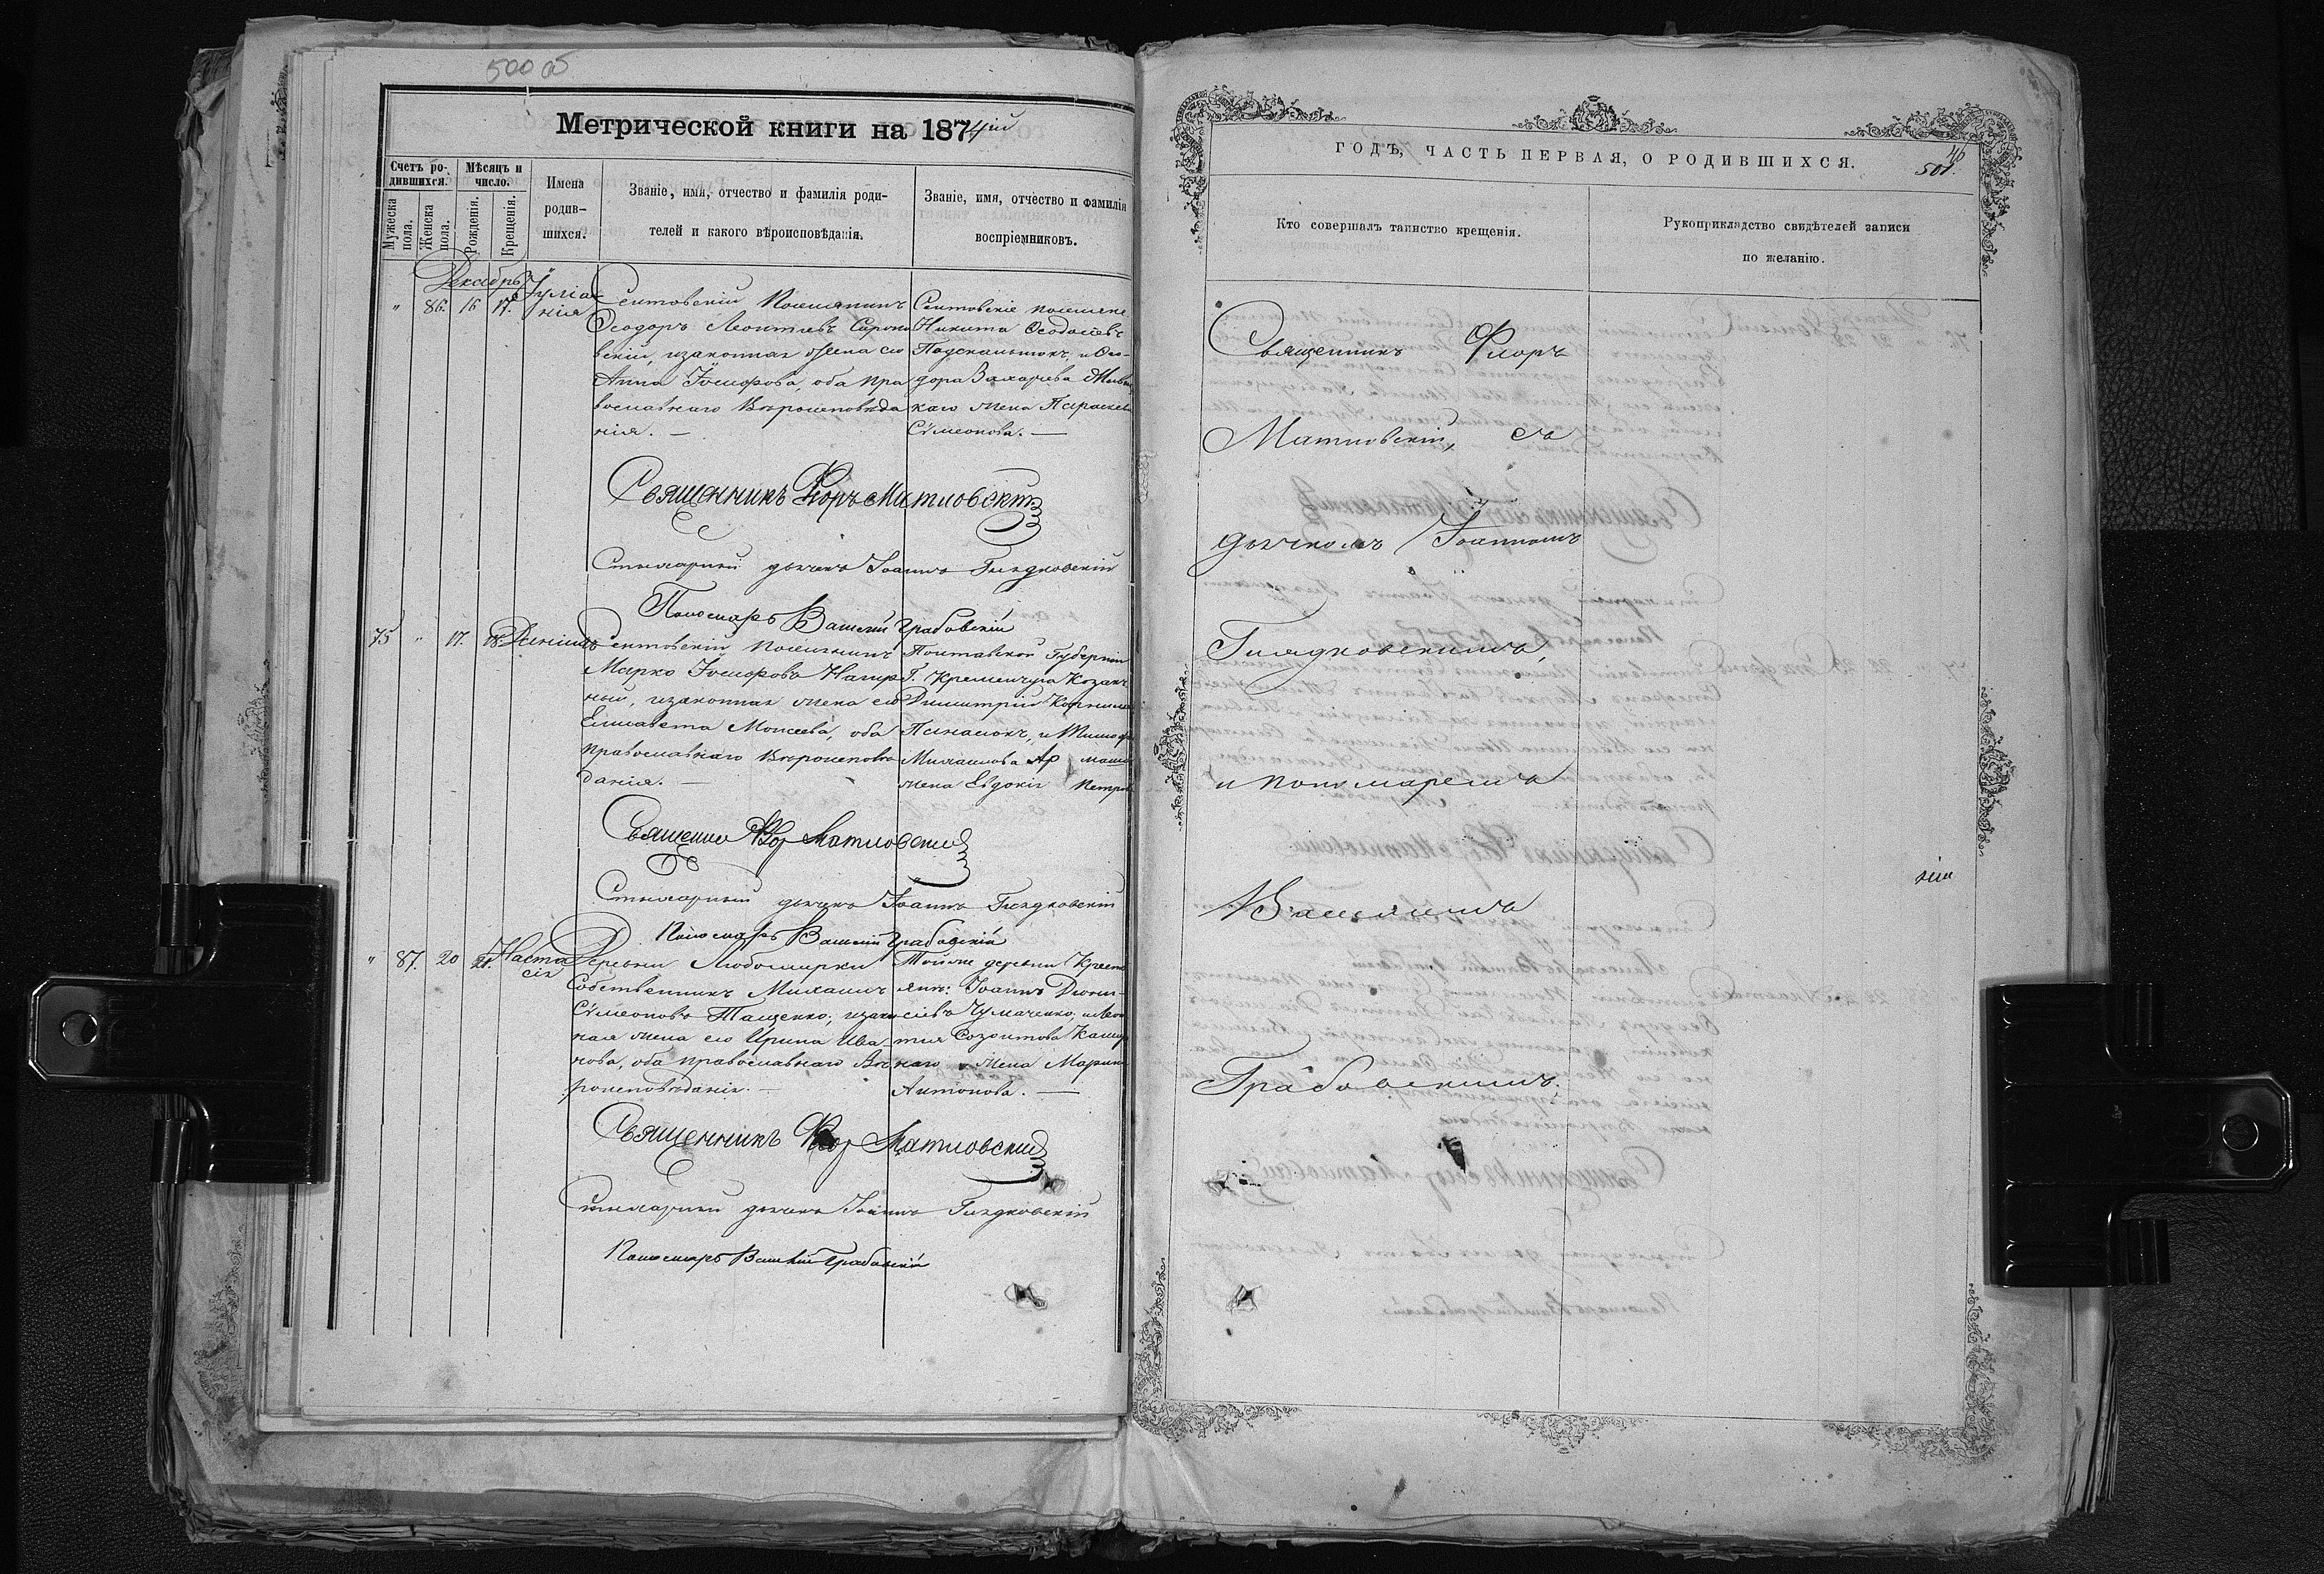 500 об
Метрической книги на 1874ій
Счетъ ро-
дившихся.
Мѣсяцъ и
число.
Имена
родив-
шихся.
Званіе, имя, отчество и фамилія роди-
телей и какого вѣроисповѣданія.
Званіе, имя, отчество и фамилія
воспріемниковъ.
Мужеска
пола.
Женска
пола.
Рожденія.
Крещенія.
Декабрь
" 86. 16 17. Іуліа
нія
Сентовскій Поселянинъ
Ѳеодоръ Леонтіевъ
вскій, и законная жена его
Анна Іосифова, оба пра
вославнаго Вѣроисповѣда
нія. —
Сентовскіе поселяне
Никита Ѳеодосіевъ
и Ѳео-
дора Захаріева
каго жена Параскева
Сѵмеонова. —
Священникъ Флоръ Матковскій
Стихарный дьячекъ Іоаннъ Глядковскій
Пономарь Василій Грабовскій
75 " 17. 18. Даніилъ
Сентовскій Поселянинъ
Марко Іосифовъ
ный, и законная жена его
Елисавета Моисеева, оба
православнаго Вѣроисповѣ
данія. —
Полтавской Губерніи
Г. Кременчуга Козакъ
Димитрій
Панасюкъ, и
Михаилова
жена Евдокія Петров
Священник Флор Матковскій
Стихарный дьячекъ Іоаннъ Глядковскій
Пономарь Василій Грабовскій
" 87. 20 21. Наста
сія
Деревни Любомирки
Собственникъ Михаилъ
Сѵмеоновъ Тащенко, и закон
ная жена его Ирина Ива-
нова, оба православнаго Вѣ
роисповѣданія. —
Той же деревни Крест
янъ: Іоаннъ Діони-
сіевъ Чумаченко, и Леон
тія Созонтова
наго жена Марина
Антонова. —
Священникъ Флор Матковскій
Стихарный дьячекъ Іоаннъ Глядковскій
Пономарь Василій Грабовскій
ГОДЪ, ЧАСТЬ ПЕРВАЯ, О РОДИВШИХСЯ.
46
501.
Кто совершалъ таинство крещенія.
Рукоприкладство свидѣтелей записи
по желанію.
Священникъ Флоръ
Матковскій, съ
дьячкомъ Іоанномъ
Глядковскимъ,
и пономаремъ
Василіемъ
Грабовскимъ.